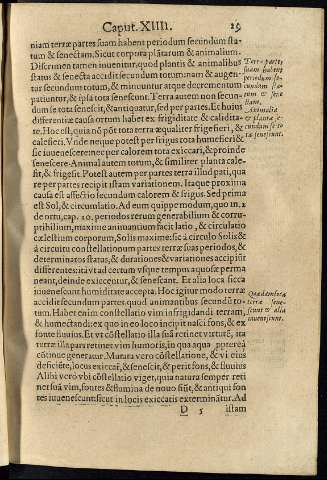 Caput. XIIII. 29
niam terræ partes suam habent periodum secundum sta-
tum & senectam. Sicut corpora plãtarum & animalium.
Discrimen tamen inuenitur, quod plantis & animalibus
status & senecta accidit secundum totum: nam & augen-
tur secundum totum, & minuuntur atque decrementum
patiuntur, & ipsa tota senescunt. Terra autem non secun-
dum se tota senescit, & antiquatur, sed per partes. Et huius
differentiæ causa ortum habet ex frigiditate & calidita-
te. Hoc est, quia nõ pôt tota terra æqualiter frigefieri, &
calefieri. Vnde neque potest per frigus tota humefieri &
sic iuuenescere: nec per calorem tota exiccari, & proinde
senescere. Animal autem totum, & similiter planta cale-
fit, & frigefit. Potest autem per partes terra illud pati, qua
re per partes recipit istam variationem. Itaque proxima
causa est affectio secundum calorem & frigus. Sed prima
est Sol, & circumlatio. Ad eum quippe modum, quo in. 2
de ortu, cap. 10. periodos rerum generabilium & corru-
ptibilium, maxime animantium facit latio, & circulatio
cælestium corporum, Solis maxime: sic à circulo Solis &
à circuitu constellationum partes terræ suas periodos, &
determinatos status, & durationes & variationes accipiũt
differentes: ita vt ad certum vsque tempus aquosæ perma
neant, deinde exiccentur, & senescant. Et alia loca sicca
iuuenescant humiditate accepta. Hoc igitur modo terræ
accidit secundum partes quod animantibus secundũ to-
tum. Habet enim constellatio vim infrigidandi terram,
& humectandi: ex quo in eo loco incipit nasci fons, & ex
fonte fluuius. Et vt cõstellatio illa suã retinet virtutẽ, ita
terræ illa pars retinet vim humoris, in qua aqua poterea
cõtinue generatur. Mutata vero cõstellatione, & vi eius
deficiẽte, locus exiccaf, & senescit, & perit fons, & fluuius
Alibi vero vbi cõstellatio viget, quia natura semper reti
net suã vim, fontes & flumina de nouo fiũt, & antiqui fon
tes iuuenescunt: sicut in locis exiccatis exterminãtur. Ad
D 5 istam
Terræ partes
suam habent
periodum se-
cundum sta-
tum & sene-
ctam.
Animalia
& planta se-
cundum se to
ta senescunt.
terræ sene-
scunt & alia
iuuenescunt.